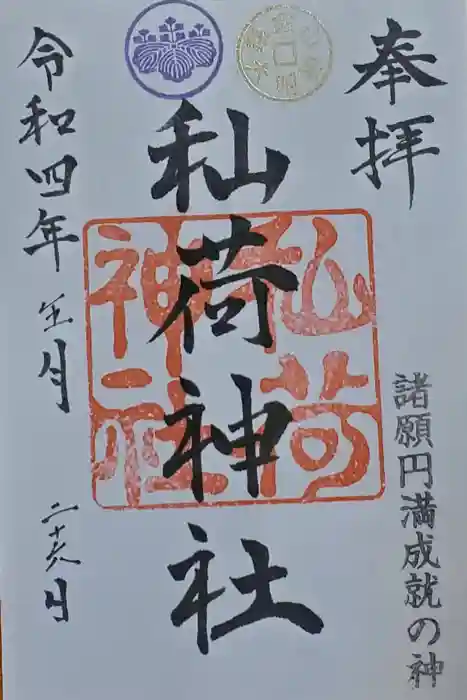 奉拝
諸願円満成就の神
秈荷神社
荷
神社
令和四年 五月 二十八日